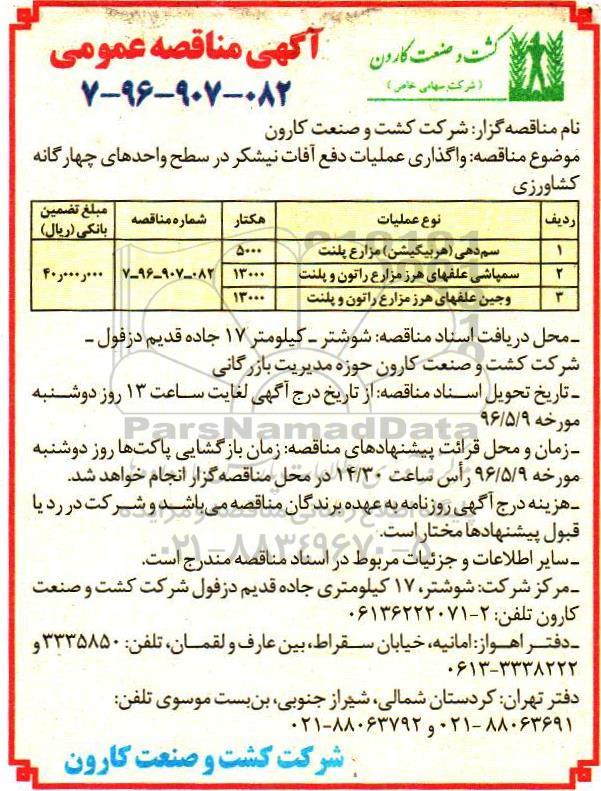 کشت و صنعت کارون
(شرکت سهامی خاص)
آگهی مناقصه عمومی
۷-۹۶-۹۰۷-۰۸۲
نام مناقصه‌گزار: شرکت کشت و صنعت کارون
موضوع مناقصه: واگذاری عملیات دفع آفات نیشکر در سطح واحدهای چهارگانه
کشاورزی
ردیف نوع عملیات هکتار شماره مناقصه مبلغ تضمین بانکی (ریال)
۱ سم‌دهی (هربیگیشن) مزارع پلنت ۵۰۰۰
۲ سمپاشی علفهای هرز مزارع راتون و پلنت ۱۳۰۰۰ ۷-۹۶-۹۰۷-۰۸۲ ۴۰٫۰۰۰٫۰۰۰
۳ وجین علفهای هرز مزارع راتون و پلنت ۱۳۰۰۰
ـ محل دریافت اسناد مناقصه: شوشتر ـ کیلومتر ۱۷ جاده قدیم دزفول ـ
شرکت کشت و صنعت کارون حوزه مدیریت بازرگانی
ـ تاریخ تحویل اسناد مناقصه: از تاریخ درج آگهی لغایت ساعت ۱۳ روز دوشنبه
مورخه ۹۶/۵/۹
ParsNamadData
ـ زمان و محل قرائت پیشنهادهای مناقصه: زمان بازگشایی پاکت‌ها روز دوشنبه
مورخه ۹۶/۵/۹ رأس ساعت ۱۴/۳۰ در محل مناقصه‌گزار انجام خواهد شد.
ـ هزینه درج آگهی روزنامه به عهده برندگان مناقصه می‌باشد و شرکت در رد یا
قبول پیشنهادها مختار است.
۰۲۱-۸۸۳۴۹۶۷۰-۵
ـ سایر اطلاعات و جزئیات مربوط در اسناد مناقصه مندرج است.
ـ مرکز شرکت: شوشتر، ۱۷ کیلومتری جاده قدیم دزفول شرکت کشت و صنعت
کارون تلفن: ۲-۰۶۱۳۶۲۲۲۰۷۱
ـ دفتر اهواز: امانیه، خیابان سقراط، بین عارف و لقمان، تلفن: ۳۳۳۵۸۵۰ و
۰۶۱۳-۳۳۳۸۲۲۲
دفتر تهران: کردستان شمالی، شیراز جنوبی، بن‌بست موسوی تلفن:
۰۲۱-۸۸۰۶۳۶۹۱ و ۰۲۱-۸۸۰۶۳۷۹۲
شرکت کشت و صنعت کارون